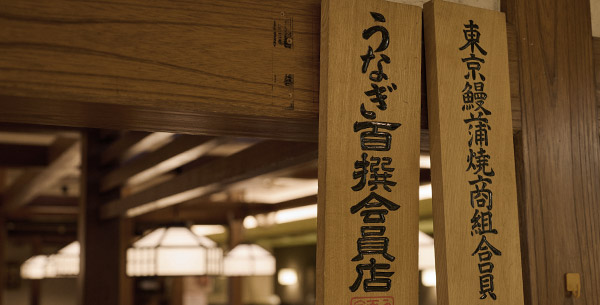 東京鰻蒲焼商組合員
うなぎ百撰会員店